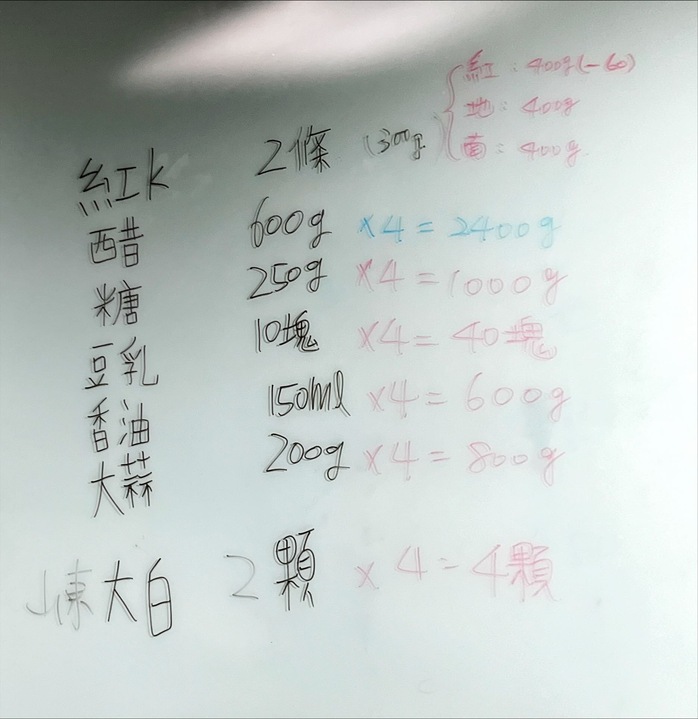 紅:400g(-60)
地:400g
紅K 2條 (300g) 黃:400g
醋 600g ×4=2400g
糖 250g ×4=1000g
豆乳 10塊 ×4=40塊
香油 150ml ×4=600g
大蒜 200g ×4=800g
凍大白 2顆 ×4=4顆